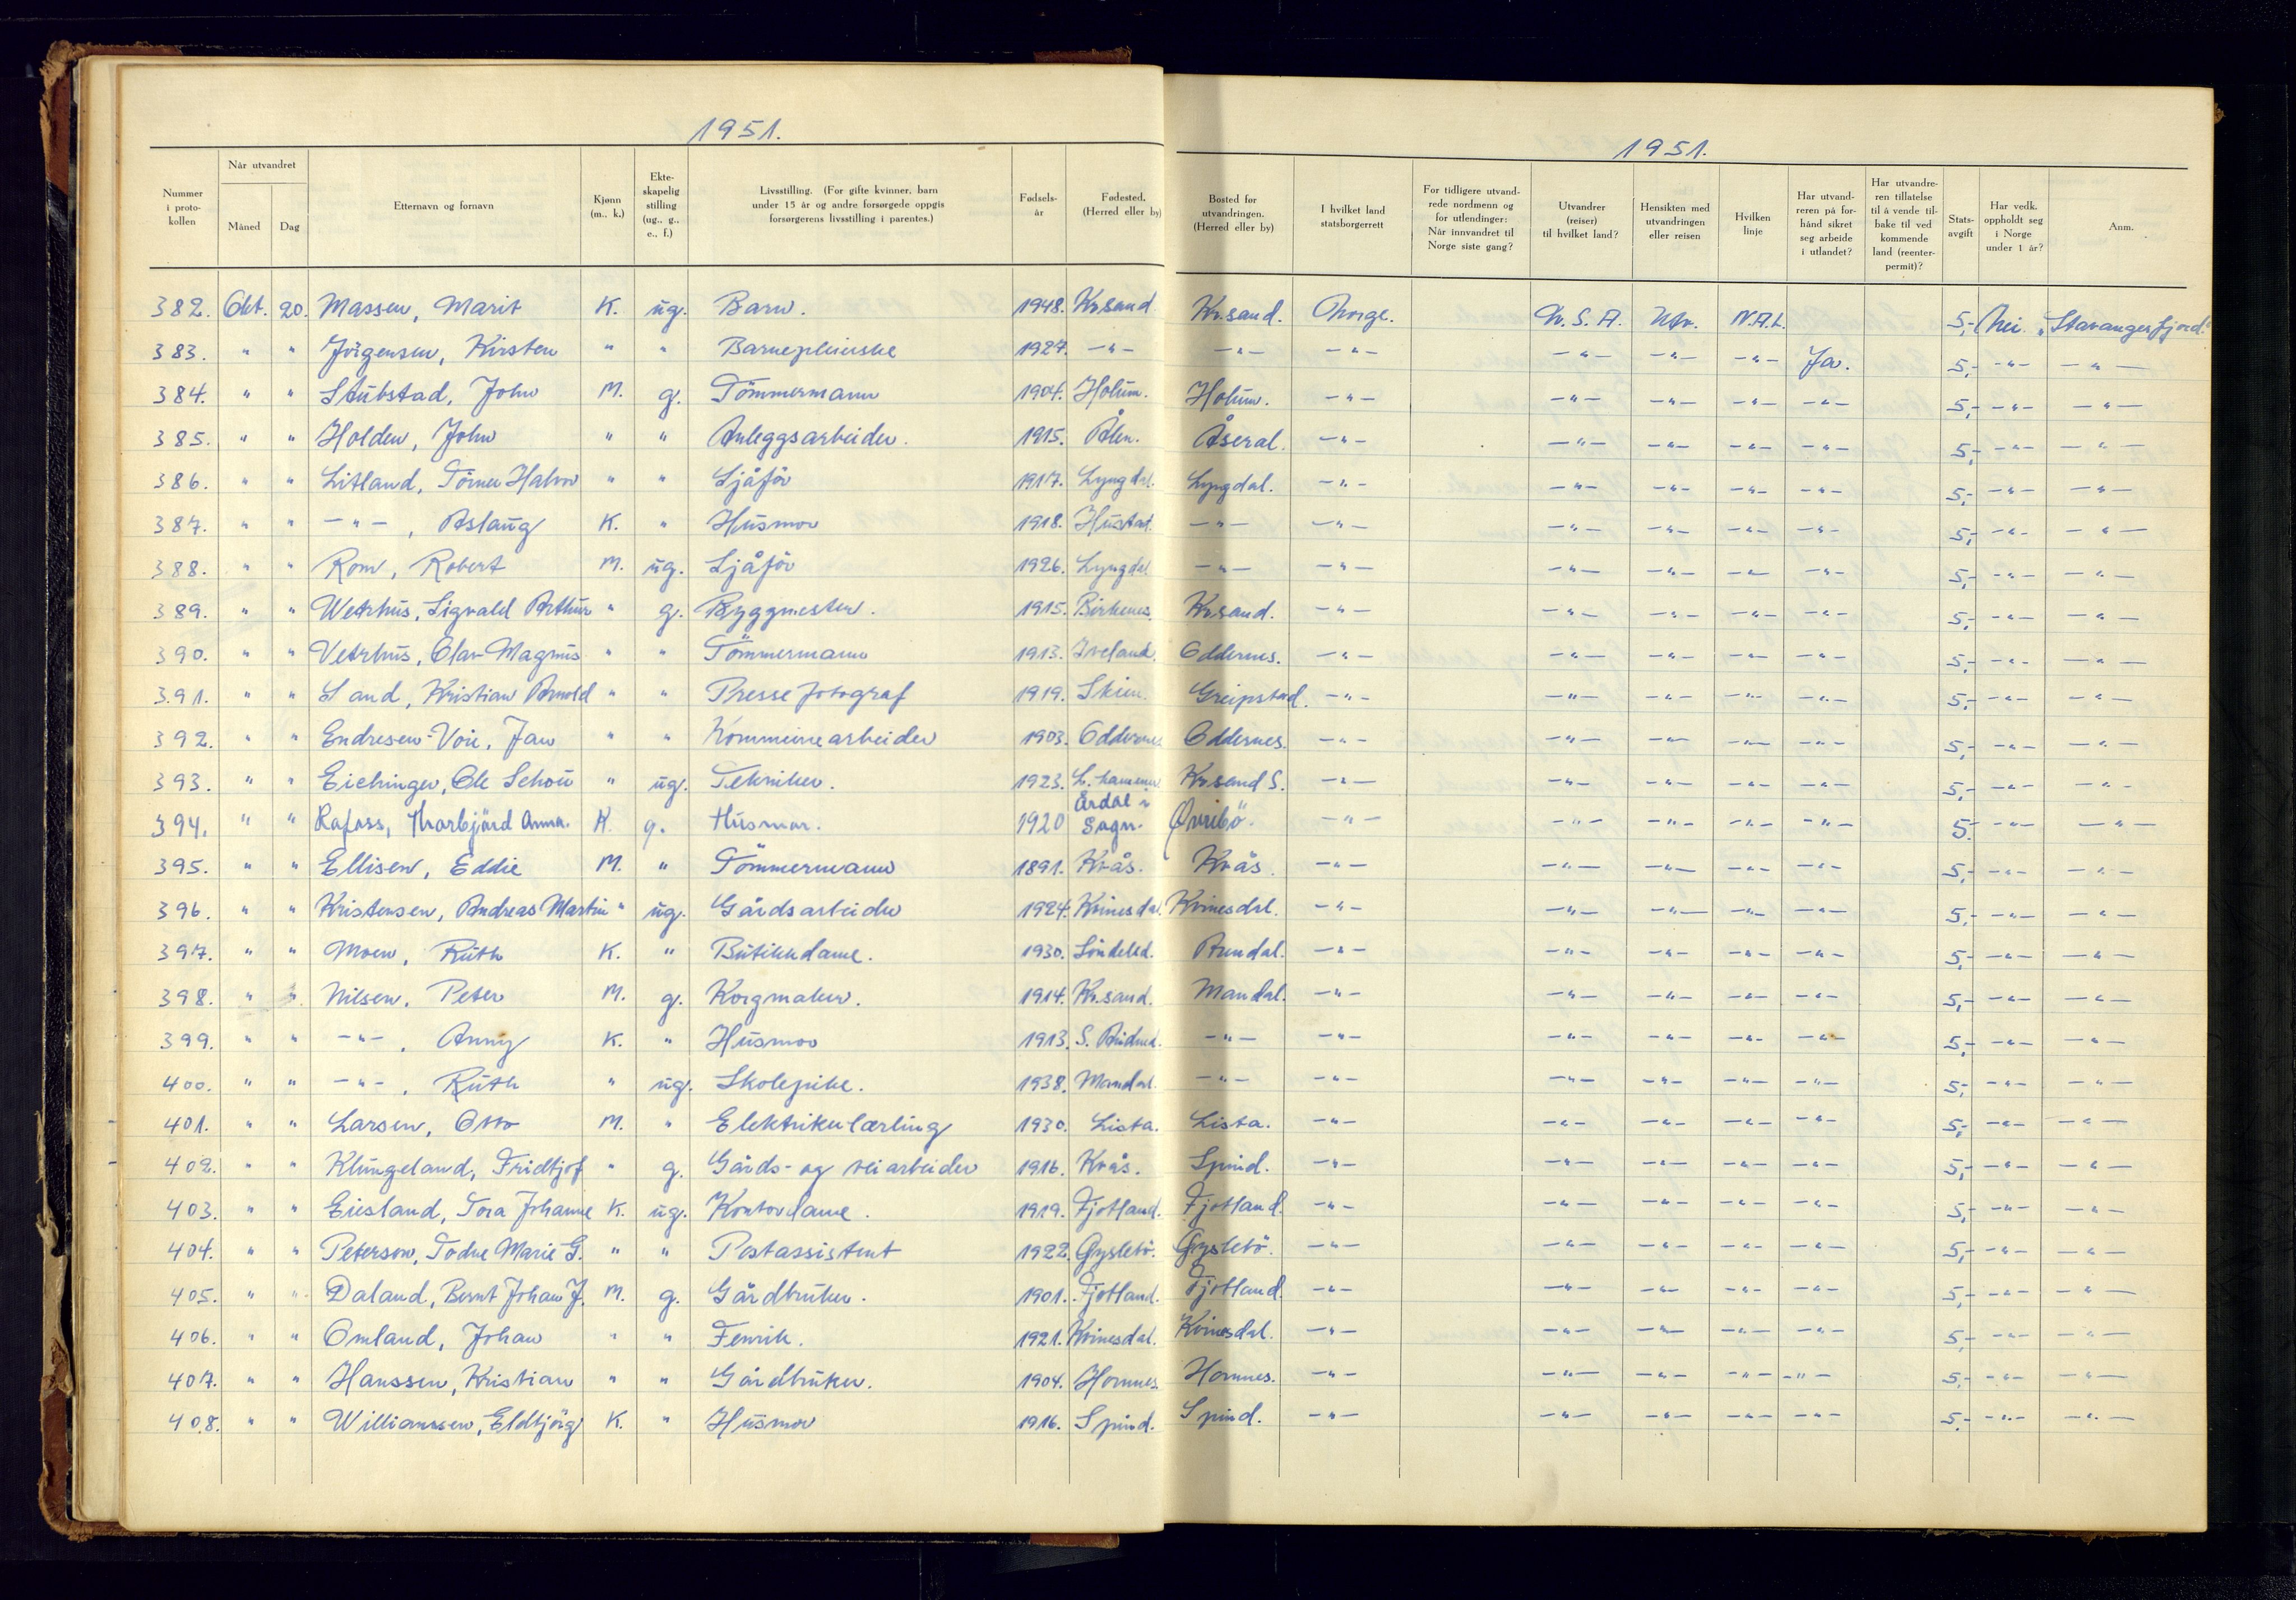 1951.
1951.
Nummer i proto-kollen | Når utvandret Måned Dag | Etternavn og fornavn | Kjønn (m., k.) | Ekte-skapelig stilling (ug., g., e., f.) | Livsstilling. (For gifte kvinner, barn under 15 år og andre forsørgede oppgis forsørgerens livsstilling i parentes.) | Fødsels-år | Fødested. (Herred eller by) | Bosted før utvandringen. (Herred eller by) | I hvilket land statsborgerrett | For tidligere utvand-rede nordmenn og for utlendinger: Når innvandret til Norge siste gang? | Utvandrer (reiser) til hvilket land? | Hensikten med utvandringen eller reisen | Hvilken linje | Har utvand-reren på for-hånd sikret seg arbeide i utlandet? | Har utvandre-ren tillatelse til å vende til-bake til ved kommende land (reenter-permit)? | Stats-avgift | Har vedk. oppholdt seg i Norge under 1 år? | Anm.
382. Okt. 20. Massen, Marit K. ug. Barn. 1948. Kr.sand Kr.sand. Norge. U.S.A. Utv. N.A.L. 5,- Nei. "Stavangerfjord"
383. " " Jörgensen, Kirsten " " Barnepleierske 1927. -"- -"- -"- -"- -"- -"- Ja. 5,- -"- -"-
384. " " Stubstad, John M. g. Tömmermann 1904. Holum. Holum. -"- -"- -"- -"- -"- 5,- -"- -"-
385. " " Holden, John " " Anleggsarbeider. 1915. Ålen. Åseral. -"- -"- -"- -"- -"- 5,- -"- -"-
386. " " Litland, Halvor " " Sjåför 1917. Lyngdal. Lyngdal. -"- -"- -"- -"- -"- 5,- -"- -"-
387. " " -"-, Aslaug K. " Husmor 1918. -"- -"- -"- -"- -"- -"- 5,- -"- -"-
388. " " Rom, Robert M. ug. Sjåför 1926. Lyngdal -"- -"- -"- -"- -"- -"- 5,- -"- -"-
389. " " Wetrhus, Sigvald Arthur " g. Byggmester. 1915. Birkenes. Kr.sand. -"- -"- -"- -"- -"- 5,- -"- -"-
390. " " Vetrhus, Olav Magnus " " Tömmermann 1913. Iveland. Oddernes. -"- -"- -"- -"- -"- 5,- -"- -"-
391. " " Sand, Kristian Arnold " " Pressefotograf 1919. Skien. Greipstad. -"- -"- -"- -"- -"- 5,- -"- -"-
392. " " Endresen-Voie, Jan " " Kommunearbeider 1903. Oddernes Oddernes. -"- -"- -"- -"- -"- 5,- -"- -"-
393. " " Eichinger, Ole Schou " ug. Tekniker. 1923. L.hammer Kr.sand S. -"- -"- -"- -"- -"- 5,- -"- -"-
394. " " Rafoss, Thorbjörd Anna. K. g. Husmor. 1920 Årdal i Sogn. Øvrebö. -"- -"- -"- -"- -"- 5,- -"- -"-
395. " " Ellisen, Eddie M. " Tömmermann 1891. Kvås. Kvås. -"- -"- -"- -"- -"- 5,- -"- -"-
396. " " Kristensen, Andreas Martin " ug. Gårdsarbeider 1924. Kvinesdal. Kvinesdal. -"- -"- -"- -"- -"- 5,- -"- -"-
397. " " Moen, Ruth K. " Butikkdame. 1930. Söndeled. Arendal. -"- -"- -"- -"- -"- 5,- -"- -"-
398. " " Nilsen, Peter M. g. Korgmaker. 1914. Kr.sand. Mandal. -"- -"- -"- -"- -"- 5,- -"- -"-
399. " " -"-, Anny K. " Husmor 1913. S. Audned. -"- -"- -"- -"- -"- -"- 5,- -"- -"-
400. " " -"-, Ruth " ug. Skolepike. 1938. Mandal. -"- -"- -"- -"- -"- -"- 5,- -"- -"-
401. " " Larsen, Otto M. " Elektrikerlærling 1930. Lista. Lista. -"- -"- -"- -"- -"- 5,- -"- -"-
402. " " Klungeland, Fridtjof " g. Gårds- og veiarbeider 1916. Kvås. Spind. -"- -"- -"- -"- -"- 5,- -"- -"-
403. " " Eiesland, Tora Johanne K. ug. Kontordame. 1919. Fjotland. Fjotland. -"- -"- -"- -"- -"- 5,- -"- -"-
404. " " Peterson, Todne Marie G. " " Postassistent 1922. Gyslebö. Gyslebö. -"- -"- -"- -"- -"- 5,- -"- -"-
405. " " Daland, Bernt Johan J. M. g. Gårdbruker. 1901. Fjotland. Fjotland. -"- -"- -"- -"- -"- 5,- -"- -"-
406. " " Omland, Johan " " Fenrik. 1921. Kvinesdal. Kvinesdal. -"- -"- -"- -"- -"- 5,- -"- -"-
407. " " Hanssen, Kristian " " Gårdbruker. 1904. Hornnes. Hornnes. -"- -"- -"- -"- -"- 5,- -"- -"-
408. " " Willianssen, Eldbjörg K. " Husmor 1916. Spind. Spind. -"- -"- -"- -"- -"- 5,- -"- -"-